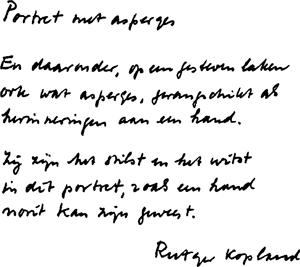 Portret met asperges
En daaronder, op een gesteven laken
ook wat asperges, gerangschikt als
herinneringen aan een hand.
Zij zijn het stilst en het witst
in dit portret, zoals een hand
nooit kan zijn geweest.
Rutger Kopland